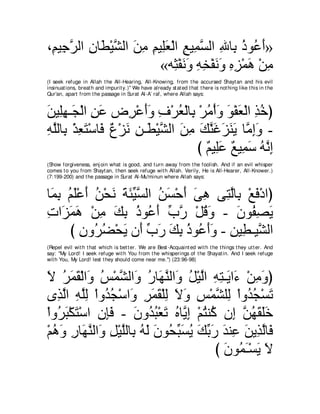 «أَعُوذُ بِاللهِ السَّمِيعِ الْعَلِيمِ مِنَ الشَّيْطَانِ الرَّجِيمِ،
مِنْ هَمْزِهِ وَنَفْخِهِ وَنَفْثِهِ»
(I seek refuge in Allah the All-Hearing, All-Knowing, from the accursed Shaytan and his evil
insinuations, breath and impurity.)'' We have already stated that there is nothing like this in the
Qur'an, apart from the passage in Surat Al-A`raf, where Allah says:
(خُذِ الْعَفْوَ وَأْمُرْ بِالْعُرْفِ وَأَعْرِضْ عَنِ الْجَـهِلِينَ
- وَإِمَّا يَنَزَغَنَّكَ مِنَ الشَّيْطَـنِ نَزْغٌ فَاسْتَعِذْ بِاللَّهِ
إِنَّهُ سَمِيعٌ عَلِيمٌ )
(Show forgiveness, enjoin what is good, and turn away from the foolish. And if an evil whisper
comes to you from Shaytan, then seek refuge with Allah. Verily, He is All-Hearer, All-Knower.)
(7:199-200) and the passage in Surat Al-Mu'minun where Allah says:
(ادْفَعْ بِالَّتِى هِىَ أَحْسَنُ السَّيِّئَةَ نَحْنُ أَعْلَمُ بِمَا
يَصِفُونَ - وَقُلْ رَّبِّ أَعُوذُ بِكَ مِنْ هَمَزَاتِ
الشَّيـطِينِ - وَأَعُوذُ بِكَ رَبِّ أَن يَحْضُرُونِ )
(Repel evil with that which is better. We are Best-Acquainted with the things they utter. And
say: "My Lord! I seek refuge with You from the whisperings of the Shayatin. And I seek refuge
with You, My Lord! lest they should come near me.'') (23:96-98)
(وَمِنْ ءَايَـتِهِ الَّيْلُ وَالنَّهَارُ وَالشَّمْسُ وَالْقَمَرُ لاَ
تَسْجُدُواْ لِلشَّمْسِ وَلاَ لِلْقَمَرِ وَاسْجُدُواْ لِلَّهِ الَّذِى
خَلَقَهُنَّ إِن كُنتُمْ إِيَّاهُ تَعْبُدُونَ - فَإِنِ اسْتَكْبَرُواْ
فَالَّذِينَ عِندَ رَبِّكَ يُسَبِّحُونَ لَهُ بِالَّيْلِ وَالنَّهَارِ وَهُمْ
لاَ يَسْـَمُونَ )